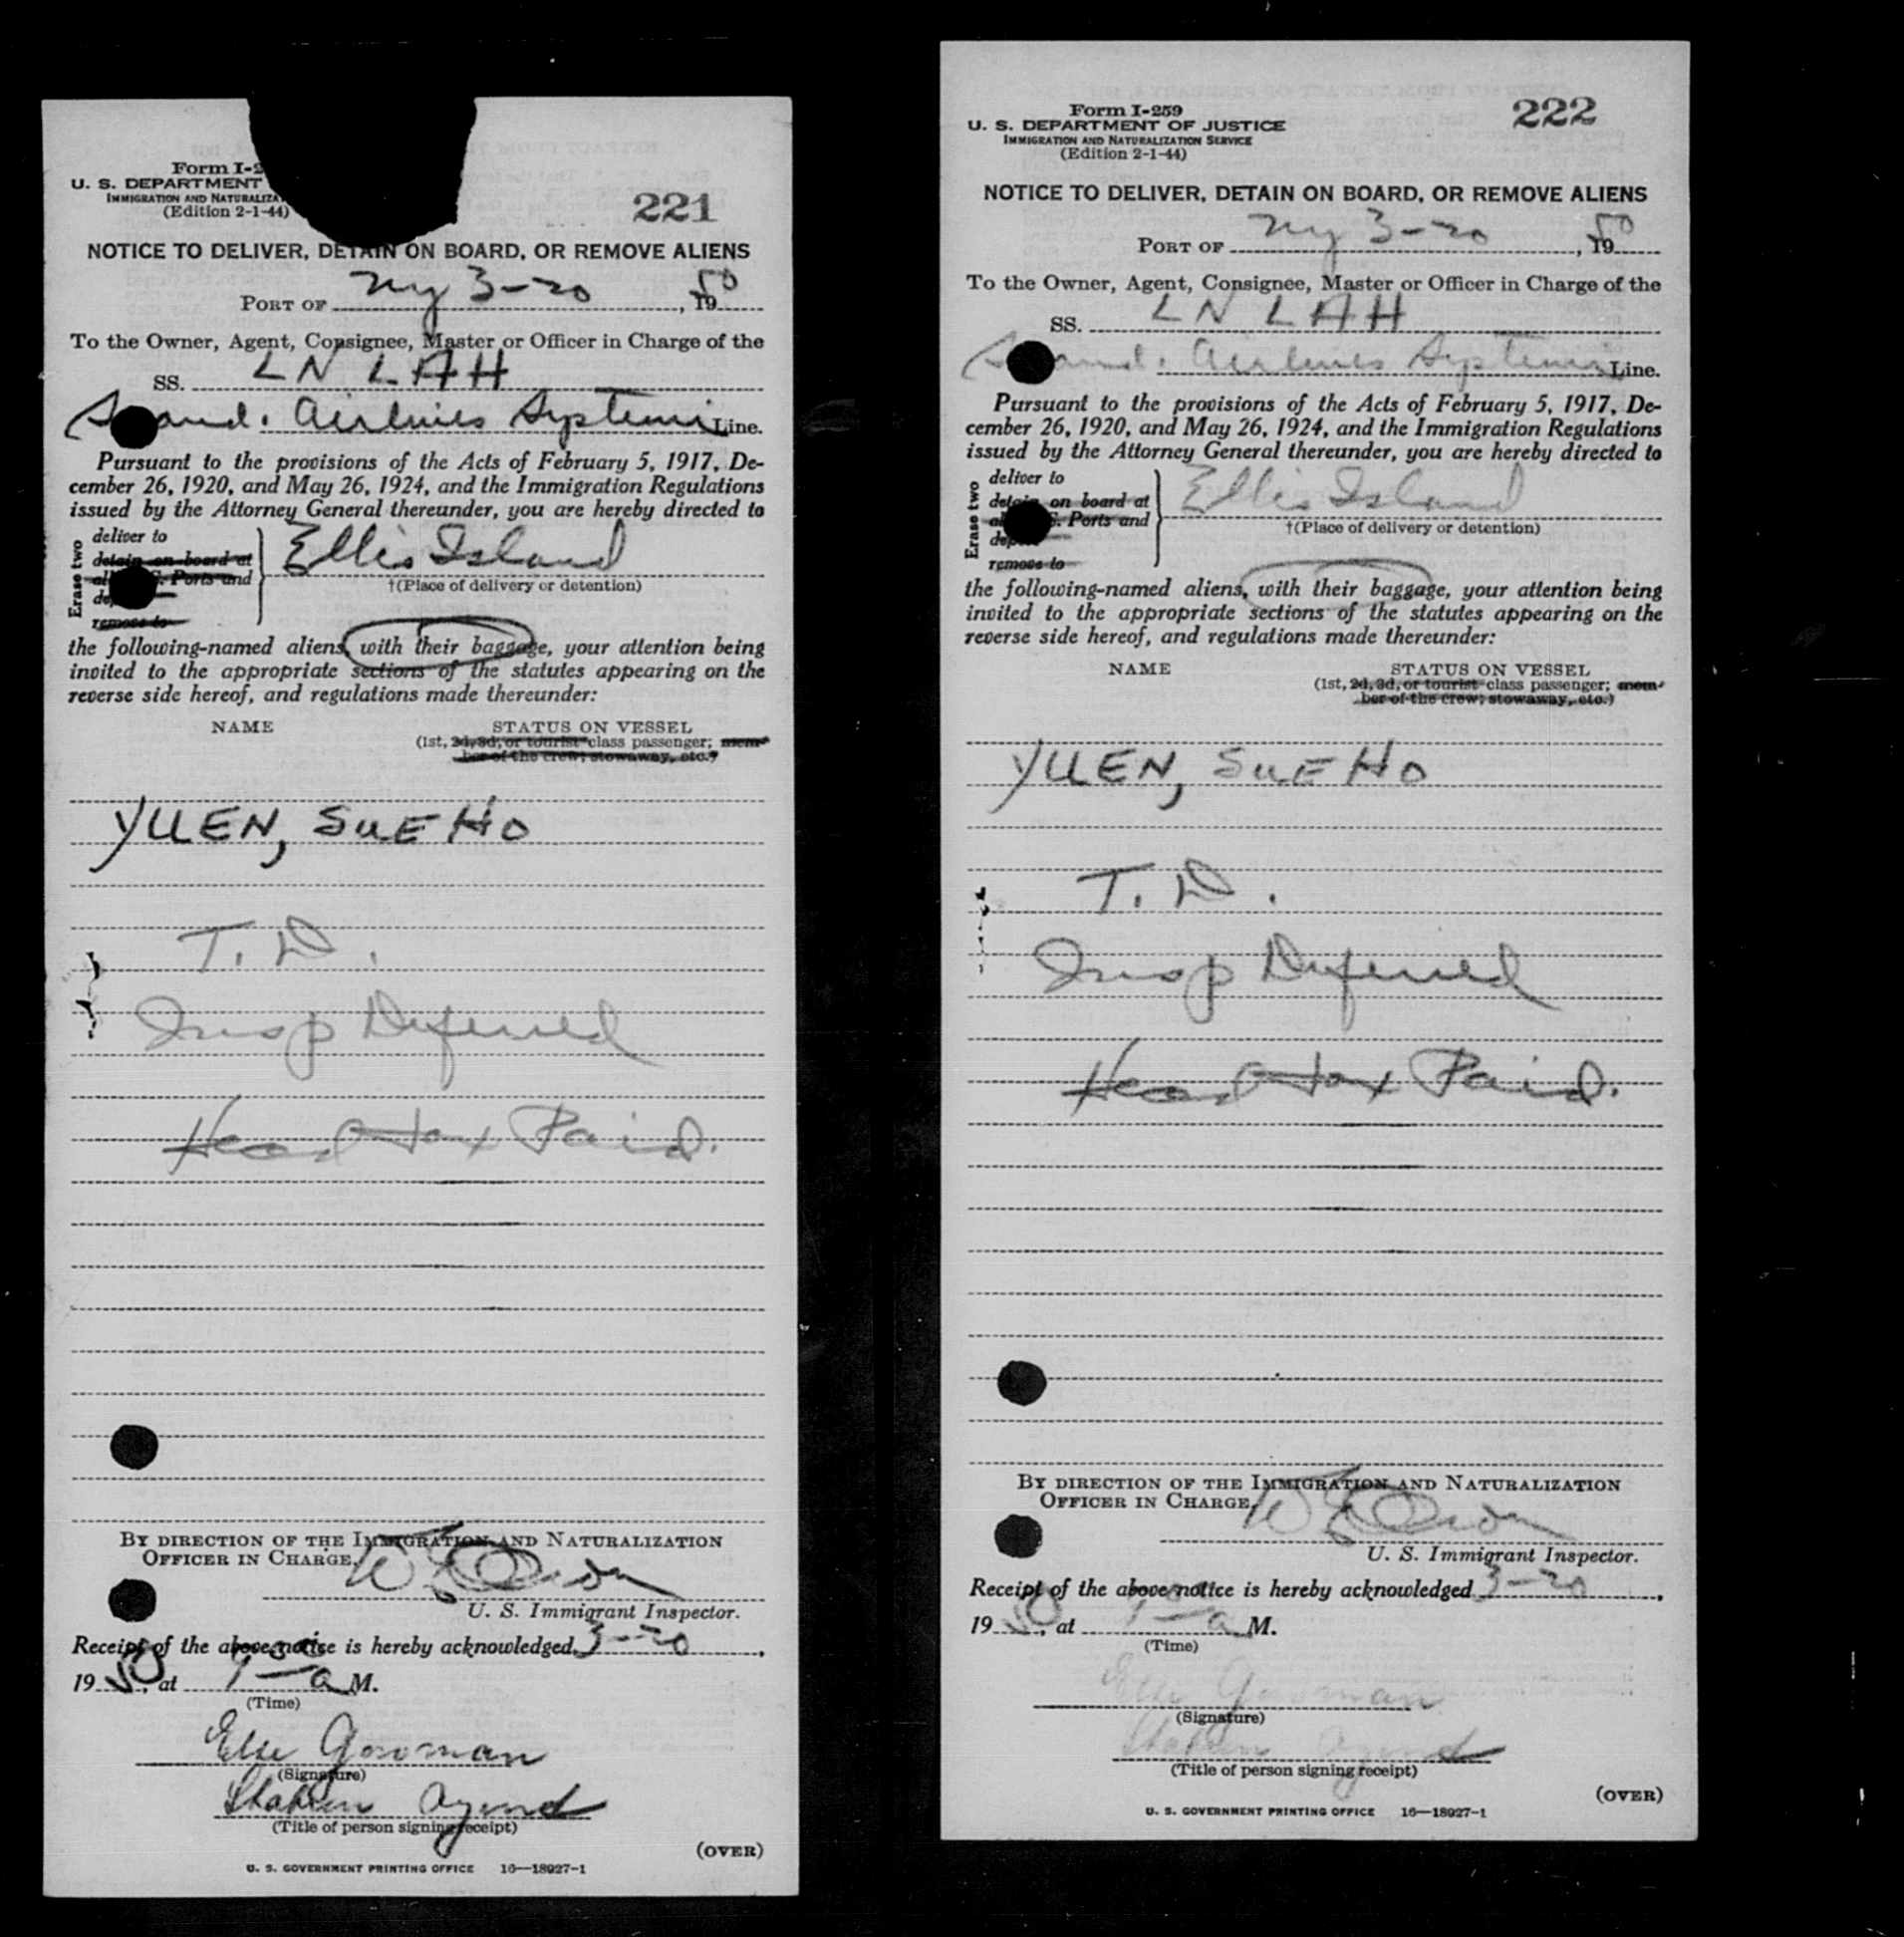 Form I-2
U. S. DEPARTMENT
IMMIGRATION AND NATURALIZA
(Edition 2-1-44)
221
NOTICE TO DELIVER, DETAIN ON BOARD, OR REMOVE ALIENS
PORT OF NY 3-20, 1950
To the Owner, Agent, Consignee, Master or Officer in Charge of the
SS. LN LAH
Scand. Airlines System Line.
Pursuant to the provisions of the Acts of February 5, 1917, De-
cember 26, 1920, and May 26, 1924, and the Immigration Regulations
issued by the Attorney General thereunder, you are hereby directed to
Erase two
deliver to
detain on board at
Ports and
remove to
Ellis Island
†(Place of delivery or detention)
the following-named aliens, with their baggage, your attention being
invited to the appropriate sections of the statutes appearing on the
reverse side hereof, and regulations made thereunder:
NAME STATUS ON VESSEL
(1st, 2d, 3d, or tourist class passenger; mem-
ber of the crew; stowaway, etc.)
YUEN, SUE HO
T. D.
Insp Deferred
Head Tax Paid.
BY DIRECTION OF THE IMMIGRATION AND NATURALIZATION
OFFICER IN CHARGE,
U. S. Immigrant Inspector.
Receipt of the above notice is hereby acknowledged 3-20,
1950, at 9 00 a M.
(Time)
Else
(Signature)
Station Agent
(Title of person signing receipt)
(OVER)
U. S. GOVERNMENT PRINTING OFFICE 16—18927-1
Form I-259
U. S. DEPARTMENT OF JUSTICE
IMMIGRATION AND NATURALIZATION SERVICE
(Edition 2-1-44)
222
NOTICE TO DELIVER, DETAIN ON BOARD, OR REMOVE ALIENS
PORT OF NY 3-20, 1950
To the Owner, Agent, Consignee, Master or Officer in Charge of the
SS. LN LAH
Scand. Airlines System Line.
Pursuant to the provisions of the Acts of February 5, 1917, De-
cember 26, 1920, and May 26, 1924, and the Immigration Regulations
issued by the Attorney General thereunder, you are hereby directed to
Erase two
deliver to
detain on board at
Ports and
remove to
Ellis Island
†(Place of delivery or detention)
the following-named aliens, with their baggage, your attention being
invited to the appropriate sections of the statutes appearing on the
reverse side hereof, and regulations made thereunder:
NAME STATUS ON VESSEL
(1st, 2d, 3d, or tourist class passenger; mem-
ber of the crew; stowaway, etc.)
YUEN, SUE HO
T. D.
Insp Deferred
Head Tax Paid.
BY DIRECTION OF THE IMMIGRATION AND NATURALIZATION
OFFICER IN CHARGE,
U. S. Immigrant Inspector.
Receipt of the above notice is hereby acknowledged 3-20,
1950, at 9 00 a M.
(Time)
Else
(Signature)
Station Agent
(Title of person signing receipt)
(OVER)
U. S. GOVERNMENT PRINTING OFFICE 16—18927-1